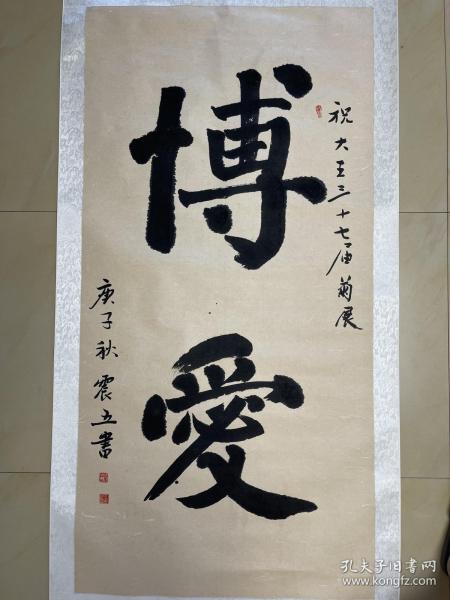 祝大王三十七届菊展
博愛
庚子秋震五書
孔夫子旧书网
www.kongfz.com